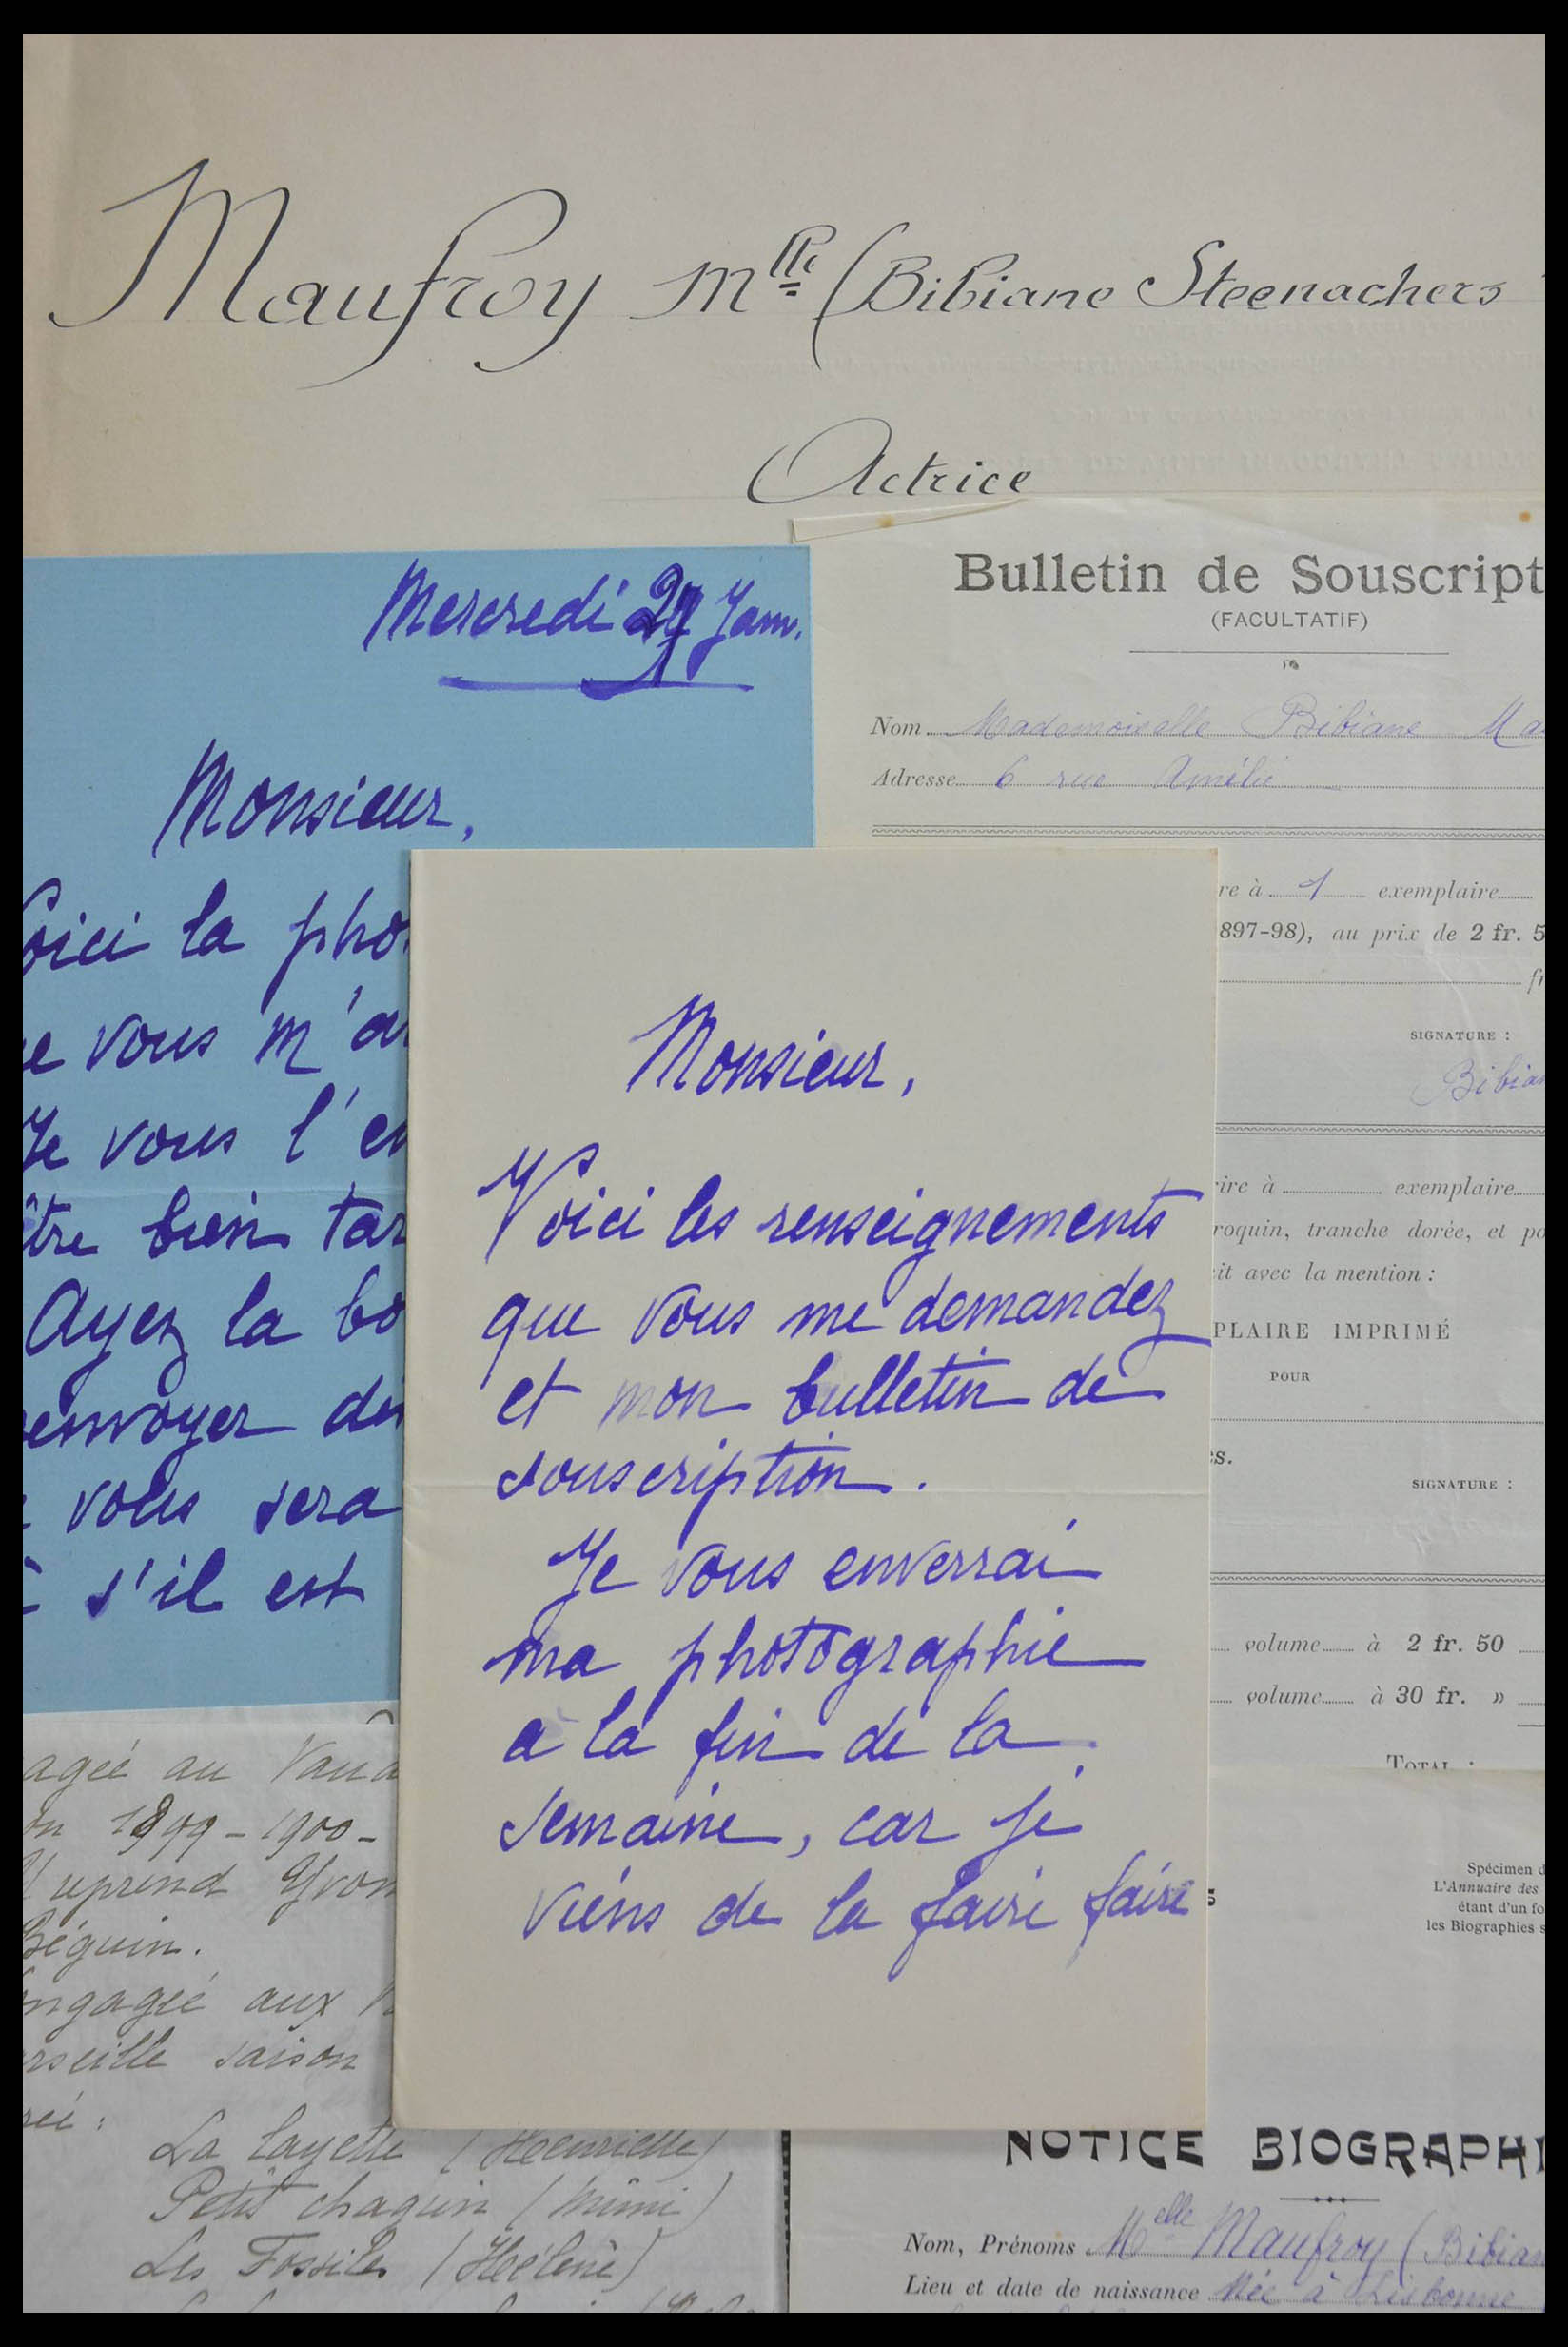 Maufroy Mlle (Bibiane Steenachers
Actrice
Mercredi 27 Janv.
Monsieur,
oici la pho
e vous m'a
Je vous l'en
être bien tar
Ayez la bo
envoyer de
vous sera
s'il est
Bulletin de Souscript
(FACULTATIF)
Nom Mademoiselle Bibiane Ma
Adresse 6 rue Amélie
re à 1 exemplaire
897-98), au prix de 2 fr. 5
fr
SIGNATURE :
Bibian
rire à exemplaire
roquin, tranche dorée, et po
it avec la mention :
PLAIRE IMPRIMÉ
POUR
s.
SIGNATURE :
volume à 2 fr. 50
volume à 30 fr. »
TOTAL :
Monsieur,
Voici les renseignements
que vous me demandez
et mon bulletin de
souscription.
Je vous enverrai
ma photographie
à la fin de la
semaine, car je
viens de la faire faire
agée au Vaud
on 1899-1900-
reprend Yvon
Béguin.
engagée aux
rseille saison
réé :
La layette (Henriette)
Petit chagrin (Mimi)
Les Fossiles (Hélène)
Spécimen d
L'Annuaire des
étant d'un fo
les Biographies s
NOTICE BIOGRAPHI
Nom, Prénoms Melle Maufroy (Bibian
Lieu et date de naissance Née à Lisbonne